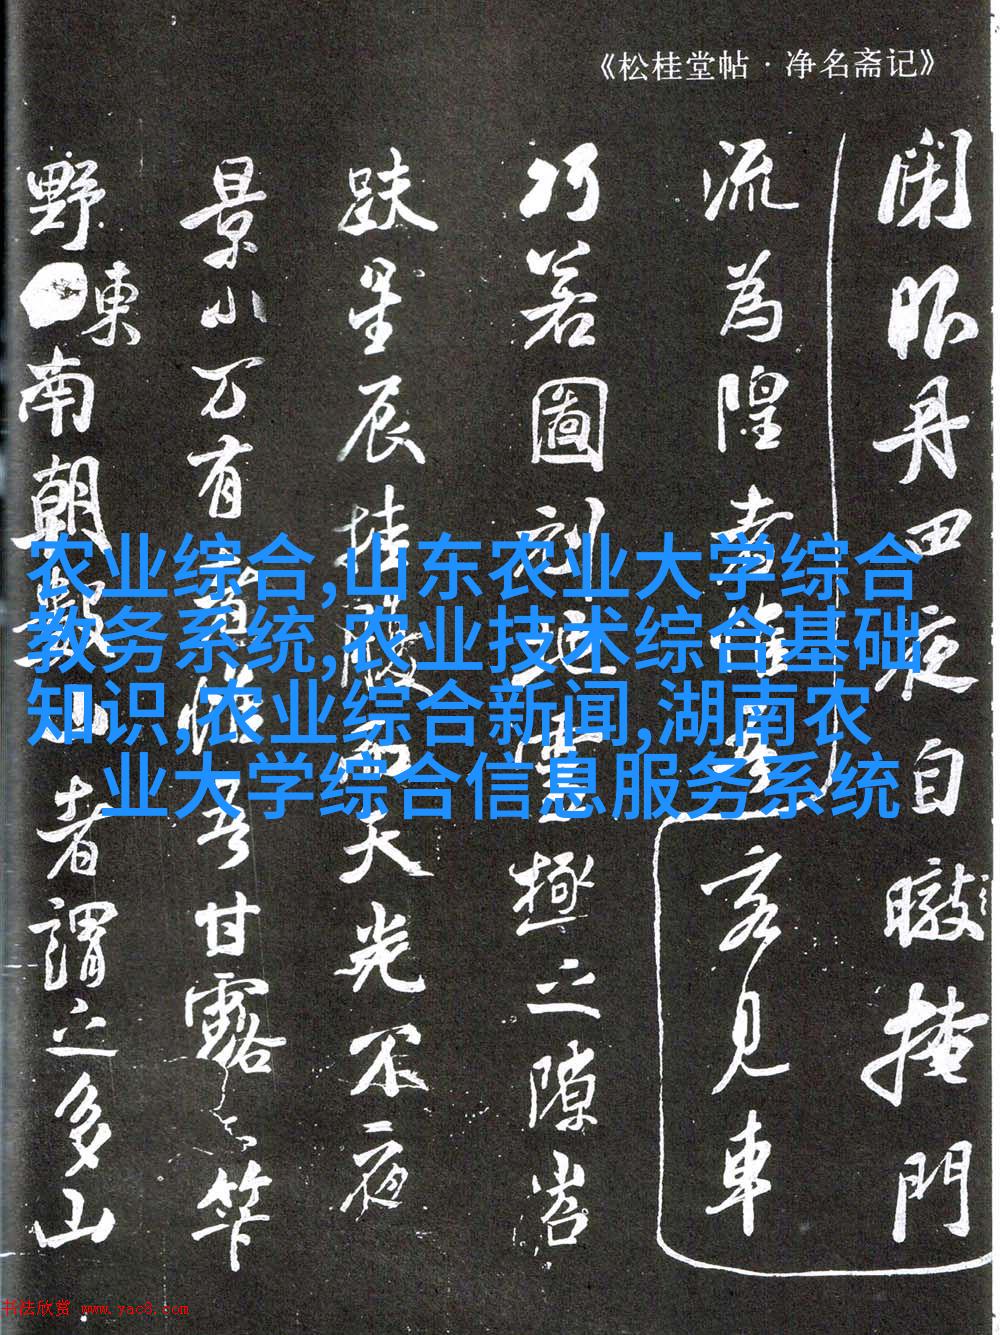 《松桂堂帖·净名斋记》
丹田夜自暾掩門
流為隍者客見車
巧若圖刻極之隙岩
星辰挂天光不夜
景小万有吾甘露
野東南朝山者謂之多山
农业综合,山东农业大学综合
教务系统,农业技术综合基础
知识,农业综合新闻,湖南农
业大学综合信息服务系统
书法欣赏 www.yac8.com